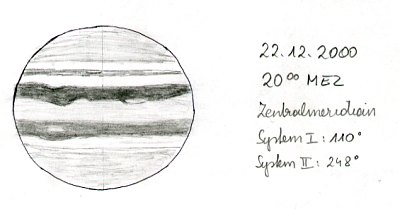 22.12.2000
20⁰⁰ MEZ
Zentralmeridian
System I: 110°
System II: 248°